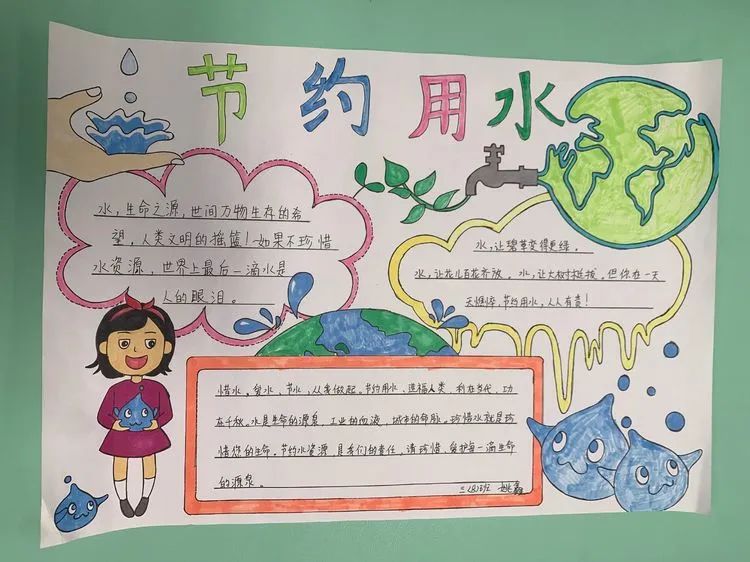 节约用水
水，生命之源，世间万物生存的希
望，人类文明的摇篮！如果不珍惜
水资源，世界上最后一滴水是
人的眼泪。
水，让碧草变得更绿。
水，让花儿百花齐放。水，让大树挺拔。但你在一天
天憔悴，节约用水，人人有责！
惜水、爱水、节水，从我做起。节约用水、造福人类、利在当代、功
在千秋。水是生命的源泉，工业的血液，城市的命脉。珍惜水就是珍
惜您的生命。节约水资源，是我们的责任，请珍惜、爱护每一滴生命
的源泉。
三(8)班 姚鑫